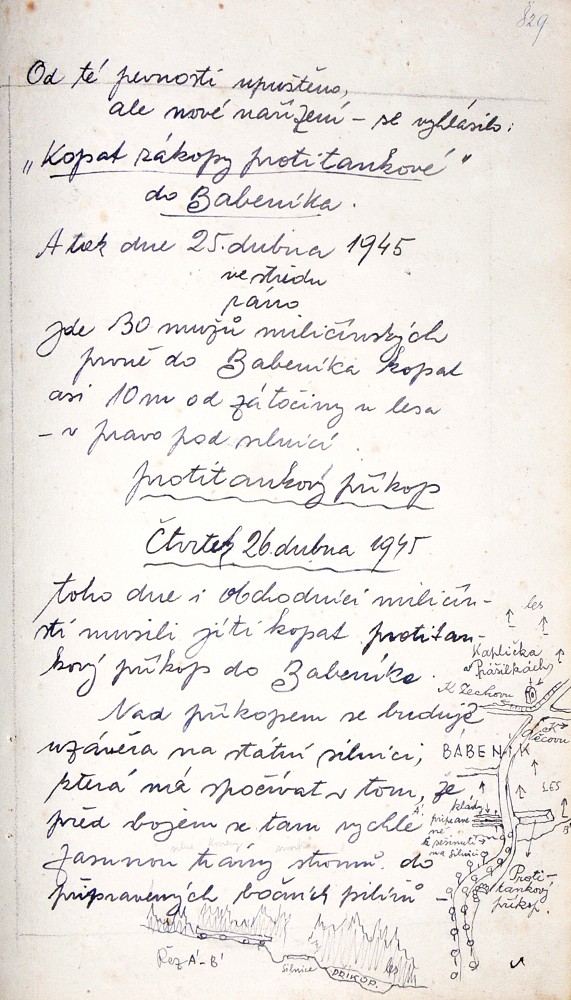 829
Od té pevnosti upuštěno,
ale nové nařízení – se vyhlásilo:
„Kopat zákopy protitankové"
do Babeníka.
A tak dne 25. dubna 1945
ve středu
ráno
jde 30 mužů miličínských
prvně do Babeníka kopat
asi 10 m od zátočiny u lesa
– v pravo pod silnicí
protitankový příkop
Čtvrtek 26. dubna 1945
toho dne i obchodníci miličín-
stí musili jíti kopat protitan-
kový příkop do Babeníka.
Nad příkopem se buduje
uzávěra na státní silnici,
která má spočívati v tom, že
před bojem se tam rychle
zasunou trámy stromů do
připravených bočních pilířů –
les
Kaplička
v Prášilkách
K Zechovu
K
BÁBENÍK
LES
A'
klády
připrave
né
k sesunutí
na silnici
B'
Proti-
tankový
příkop
Řez A'-B'
silnice
PŘÍKOP
les